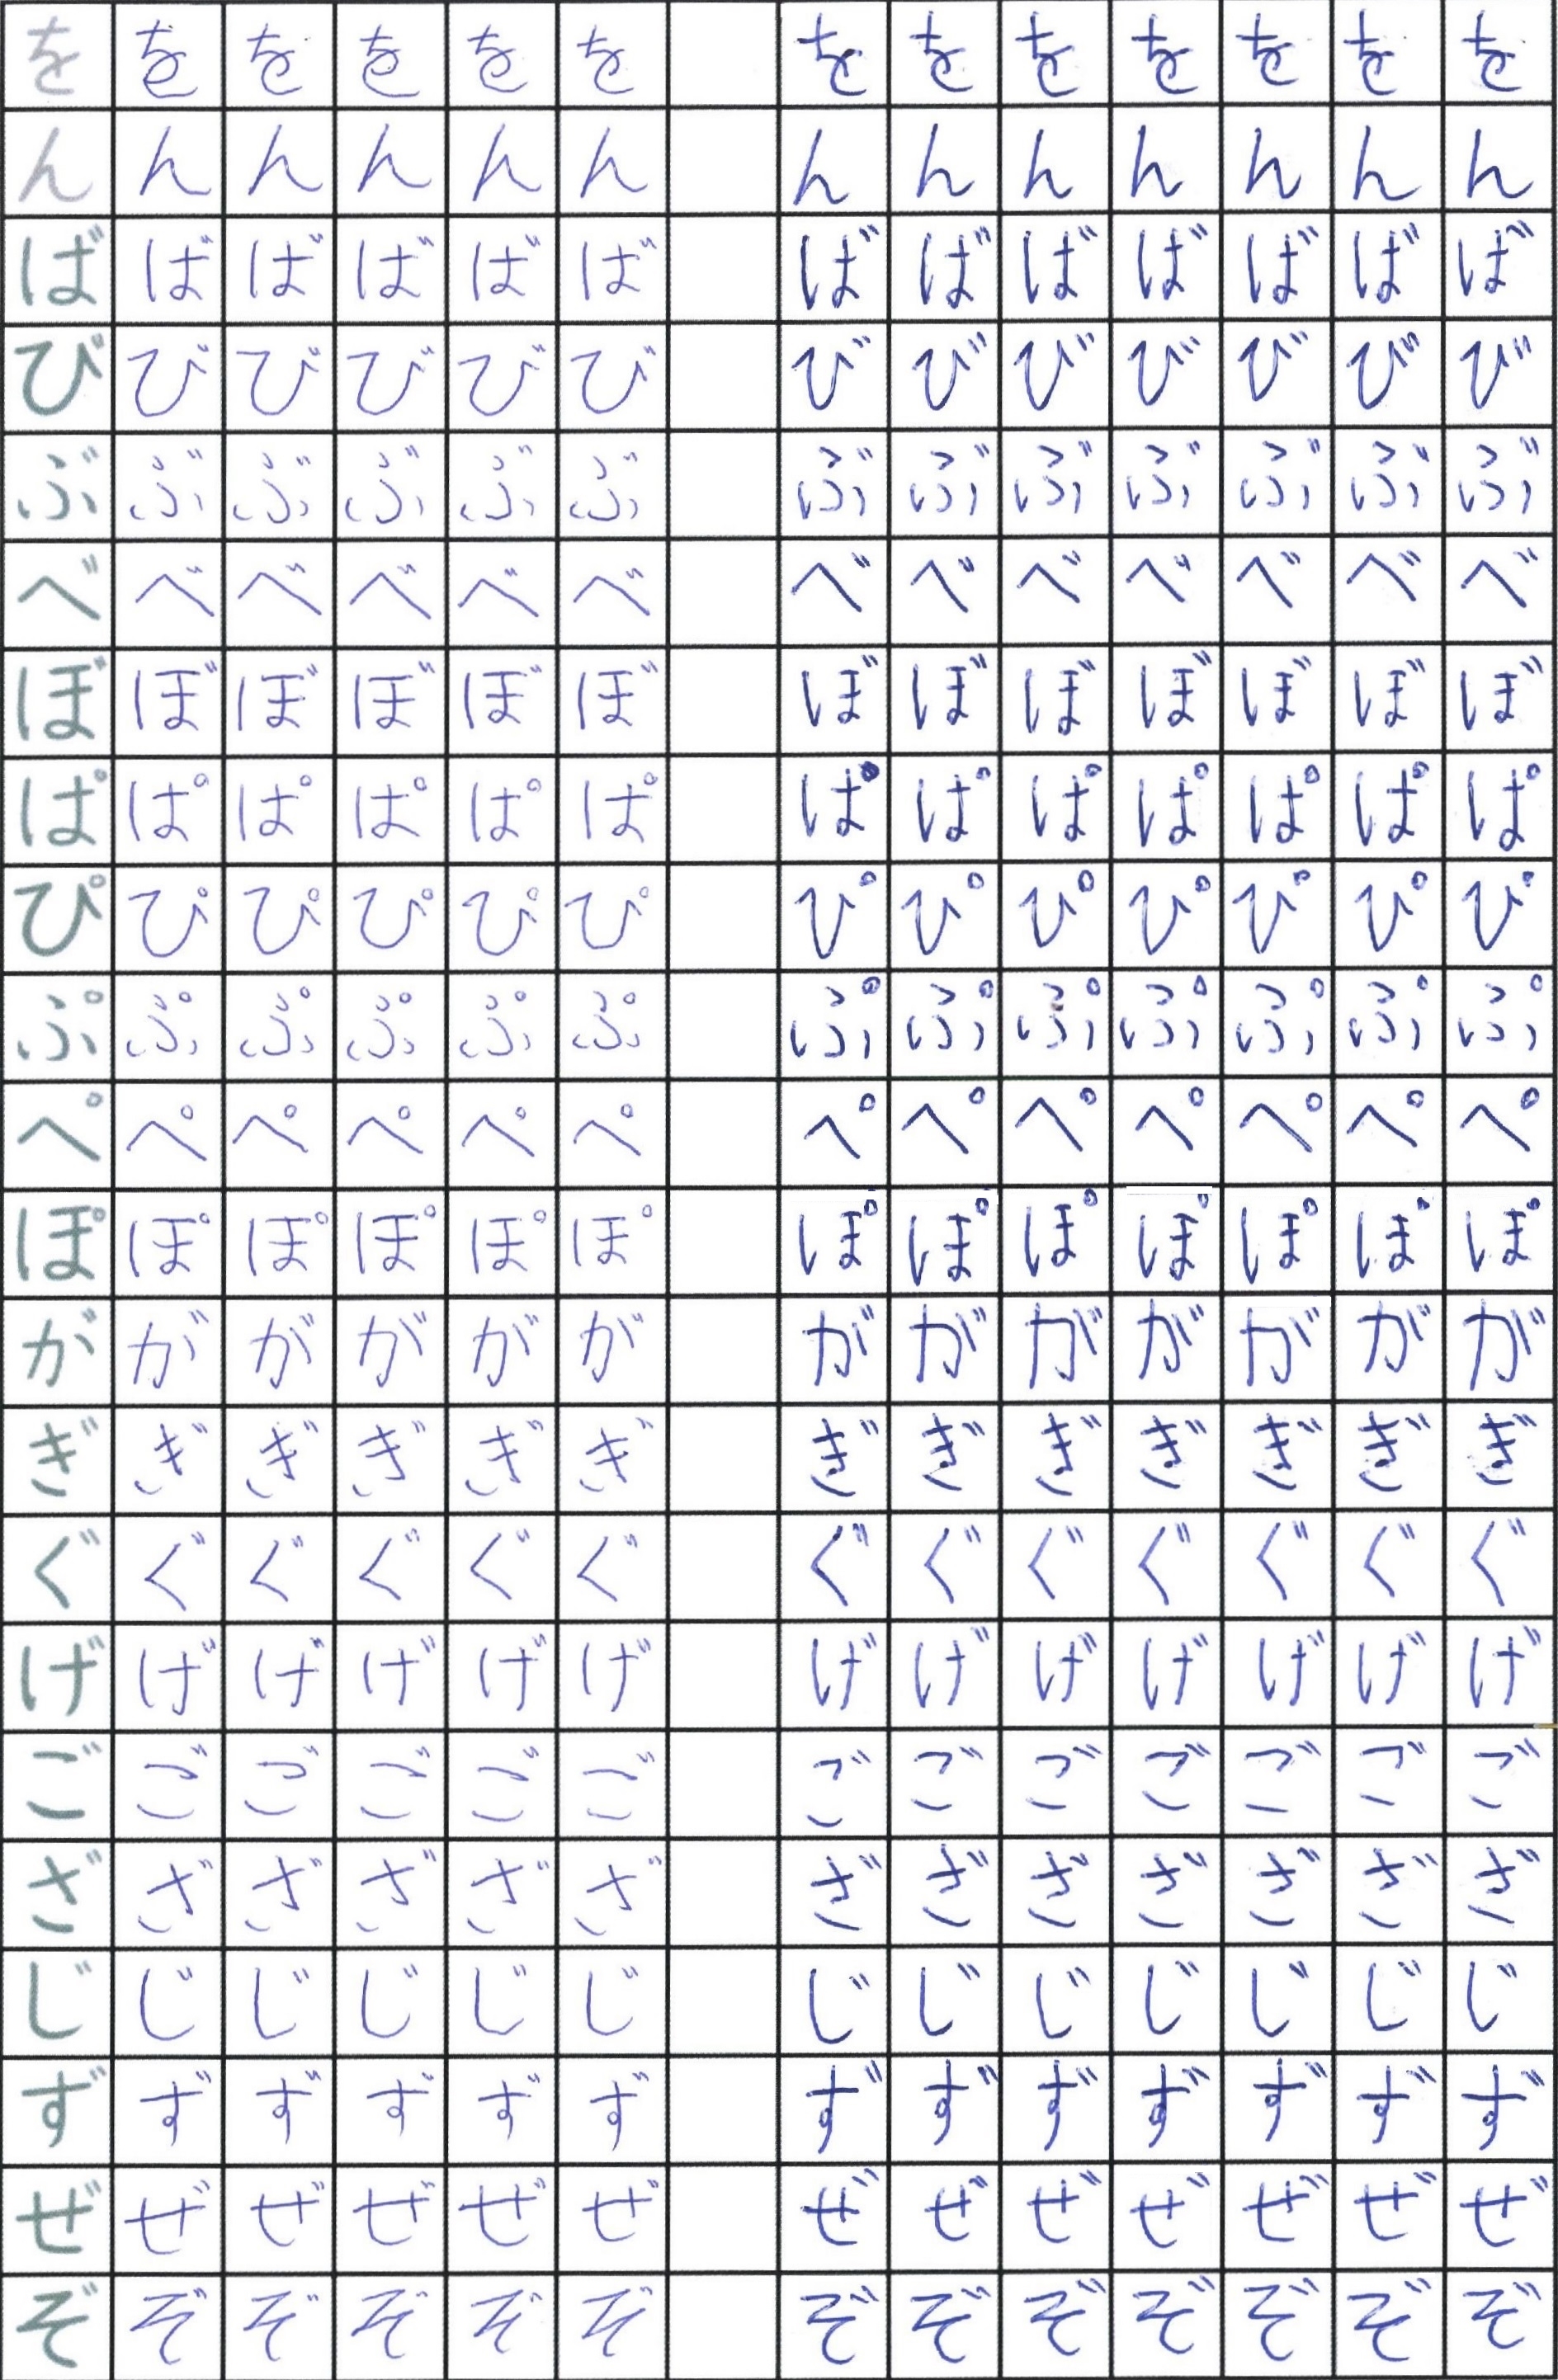 を を を を を を を を を を を を を
ん ん ん ん ん ん ん ん ん ん ん ん ん
ば ば ば ば ば ば ば ば ば ば ば ば ば
び び び び び び び び び び び び び
ぶ ぶ ぶ ぶ ぶ ぶ ぶ ぶ ぶ ぶ ぶ ぶ ぶ
べ べ べ べ べ べ べ べ べ べ べ べ べ
ぼ ぼ ぼ ぼ ぼ ぼ ぼ ぼ ぼ ぼ ぼ ぼ ぼ
ぱ ぱ ぱ ぱ ぱ ぱ ぱ ぱ ぱ ぱ ぱ ぱ ぱ
ぴ ぴ ぴ ぴ ぴ ぴ ぴ ぴ ぴ ぴ ぴ ぴ ぴ
ぷ ぷ ぷ ぷ ぷ ぷ ぷ ぷ ぷ ぷ ぷ ぷ ぷ
ぺ ぺ ぺ ぺ ぺ ぺ ぺ ぺ ぺ ぺ ぺ ぺ ぺ
ぽ ぽ ぽ ぽ ぽ ぽ ぽ ぽ ぽ ぽ ぽ ぽ ぽ
が が が が が が が が が が が が が
ぎ ぎ ぎ ぎ ぎ ぎ ぎ ぎ ぎ ぎ ぎ ぎ ぎ
ぐ ぐ ぐ ぐ ぐ ぐ ぐ ぐ ぐ ぐ ぐ ぐ ぐ
げ げ げ げ げ げ げ げ げ げ げ げ げ
ご ご ご ご ご ご ご ご ご ご ご ご ご
ざ ざ ざ ざ ざ ざ ざ ざ ざ ざ ざ ざ ざ
じ じ じ じ じ じ じ じ じ じ じ じ じ
ず ず ず ず ず ず ず ず ず ず ず ず ず
ぜ ぜ ぜ ぜ ぜ ぜ ぜ ぜ ぜ ぜ ぜ ぜ ぜ
ぞ ぞ ぞ ぞ ぞ ぞ ぞ ぞ ぞ ぞ ぞ ぞ ぞ